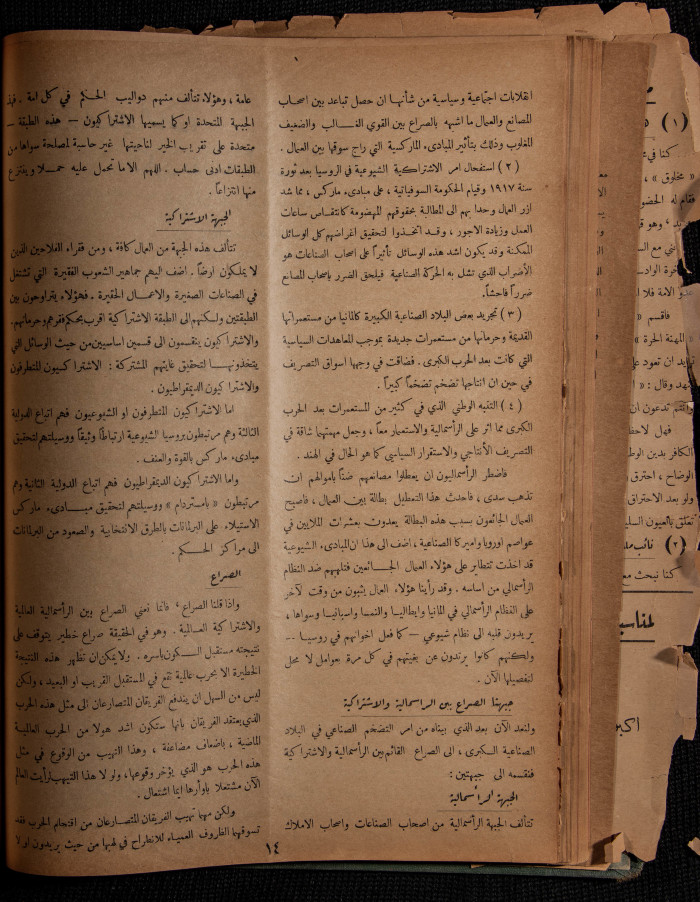 انقلابات اجتماعية وسياسية من شأنها ان حصل تباعد بين اصحاب
المصانع والعمال ما اشبه بالصراع بين القوي الغالب والضعيف
المغلوب وذلك بتأثير المبادىء الماركسية التي راج سوقها بين العمال .
(٢) استفحال امر الاشتراكية الشيوعية في الروسيا بعد ثورة
سنة ١٩١٧ وقيام الحكومة السوفياتية ، على مبادىء ماركس ، مما شد
ازر العمال وحدا بهم الى المطالبة بحقوقهم المهضومة كانقاص ساعات
العمل وزيادة الاجور ، وقد اتخذوا لتحقيق اغراضهم كل الوسائل
الممكنة وقد يكون اشد هذه الوسائل تأثيراً على اصحاب الصناعات هو
الأضراب الذي تشل به الحركة الصناعية فيلحق الضرر باصحاب المصانع
ضرراً فاحشاً .
(٣) تجريد بعض البلاد الصناعية الكبيرة كالمانيا من مستعمراتها
القديمة وحرمانها من مستعمرات جديدة بموجب المعاهدات السياسية
التي كانت بعد الحرب الكبرى . فضاقت في وجهها اسواق التصريف
في حين ان انتاجها تضخم تضخماً كبيراً .
(٤) التنبه الوطني الذي في كثير من المستعمرات بعد الحرب
الكبرى مما اثر على الرأسمالية والاستعمار معاً ، وجعل مهمتهما شاقة في
التصريف الأنتاجي والاستقرار السياسي كما هو الحال في الهند .
فاضطر الرأسماليون ان يعطلوا مصانعهم ضناً باموالهم ان
تذهب سدى ، فاحدث هذا التعطيل بطالة بين العمال ، فاصبح
العمال الجائعون بسبب هذه البطالة يعدون بعشرات الملايين في
عواصم اوروبا واميركا الصناعية ، اضف الى هذا ان المبادىء الشيوعية
قد اخذت تتطاير على هؤلاء العمال الجائعين فتلهبهم ضد النظام
الرأسمالي من اساسه . وقد رأينا هؤلاء العمال يثبون من وقت لآخر
على النظام الرأسمالي في المانيا وايطاليا والنمسا واسبانيا وسواها ،
يريدون قلبه الى نظام شيوعي — كما فعل اخوانهم في روسيا —
ولكنهم كانوا يرتدون عن بغيتهم في كل مرة بعوامل لا محل
لتفصيلها الآن .
جبهتا الصراع بين الراسمالية والاشتراكية
ولنعد الآن بعد الذي بيناه من امر التضخم الصناعي في البلاد
الصناعية الكبرى ، الى الصراع القائم بين الرأسمالية والاشتراكية
فنقسمه الى جبهتين :
الجبهة الرأسمالية
تتألف الجبهة الرأسمالية من اصحاب الصناعات واصحاب الاملاك
عامة ، وهؤلاء تتألف منهم دواليب الحكم في كل امة . فهذه
الجبهة المتحدة او كما يسميها الاشتراكيون — هذه الطبقة —
متحدة على تقريب الخير لناحيتها غير حاسبة لمصلحة سواها من
الطبقات ادنى حساب . اللهم الا ما تحمل عليه حملا وينتزع
منها انتزاعاً .
الجبهة الاشتراكية
تتألف هذه الجبهة من العمال كافة ، ومن فقراء الفلاحين الذين
لا يملكون ارضاً . اضف اليهم جماهير الشعوب الفقيرة التي تشتغل
في الصناعات الصغيرة والاعمال الحقيرة . فهؤلاء يتراوحون بين
الطبقتين ولكنهم الى الطبقة الاشتراكية اقرب بحكم فقرهم وحرمانهم .
والاشتراكيون ينقسمون الى قسمين اساسيين من حيث الوسائل التي
يتخذونها لتحقيق غايتهم المشتركة : الاشتراكيون المتطرفون
والاشتراكيون الديمقراطيون .
اما الاشتراكيون المتطرفون او الشيوعيون فهم اتباع الدولية
الثالثة وهم مرتبطون بروسيا الشيوعية ارتباطاً وثيقاً ووسيلتهم لتحقيق
مبادىء ماركس بالقوة والعنف .
واما الاشتراكيون الديمقراطيون فهم اتباع الدولية الثانية وهم
مرتبطون « بامستردام » ووسيلتهم لتحقيق مبادىء ماركس
الاستيلاء على البرلمانات بالطرق الانتخابية والصعود من البرلمانات
الى مراكز الحكم .
الصراع
واذا قلنا الصراع ، فاننا نعني الصراع بين الرأسمالية العالمية
والاشتراكية العالمية . وهو في الحقيقة صراع خطير يتوقف على
نتيجته مستقبل الكون باسره . ولا يمكن ان تظهر هذه النتيجة
الخطيرة الا بحرب عالمية تقع في المستقبل القريب او البعيد ، ولكن
ليس من السهل ان يندفع الفريقان المتصارعان الى مثل هذه الحرب
الذي يعتقد الفريقان بأنها ستكون اشد هولا من الحرب العالمية
الماضية ، باضعاف مضاعفة ، وهذا التهيب من الوقوع في مثل
هذه الحرب هو الذي يؤخر وقوعها ، ولولا هذا التهيب لرأيت العالم
الآن مشتعلا باوارها ايما اشتعال .
ولكن مهما تهيب الفريقان المتصارعان من اقتحام الحرب فقد
تسوقهما الظروف العمياء للانطراح في لهبها من حيث يريدون او لا
١٤
(١)
كنا في
« مخلوق » ،
فقام له الحضور
فاقسم «
« المهنة الحرة »
عهد وقال : «
وانتم تدعون ان
فهل لاحظ
الكافر بدين الوط
الوضاح ، احترق
ولو بعد الاحتراق
تعلق بالعيون السليـ
(٢) نائب
كنا نبحث مع
لمناسبـ
اكبر